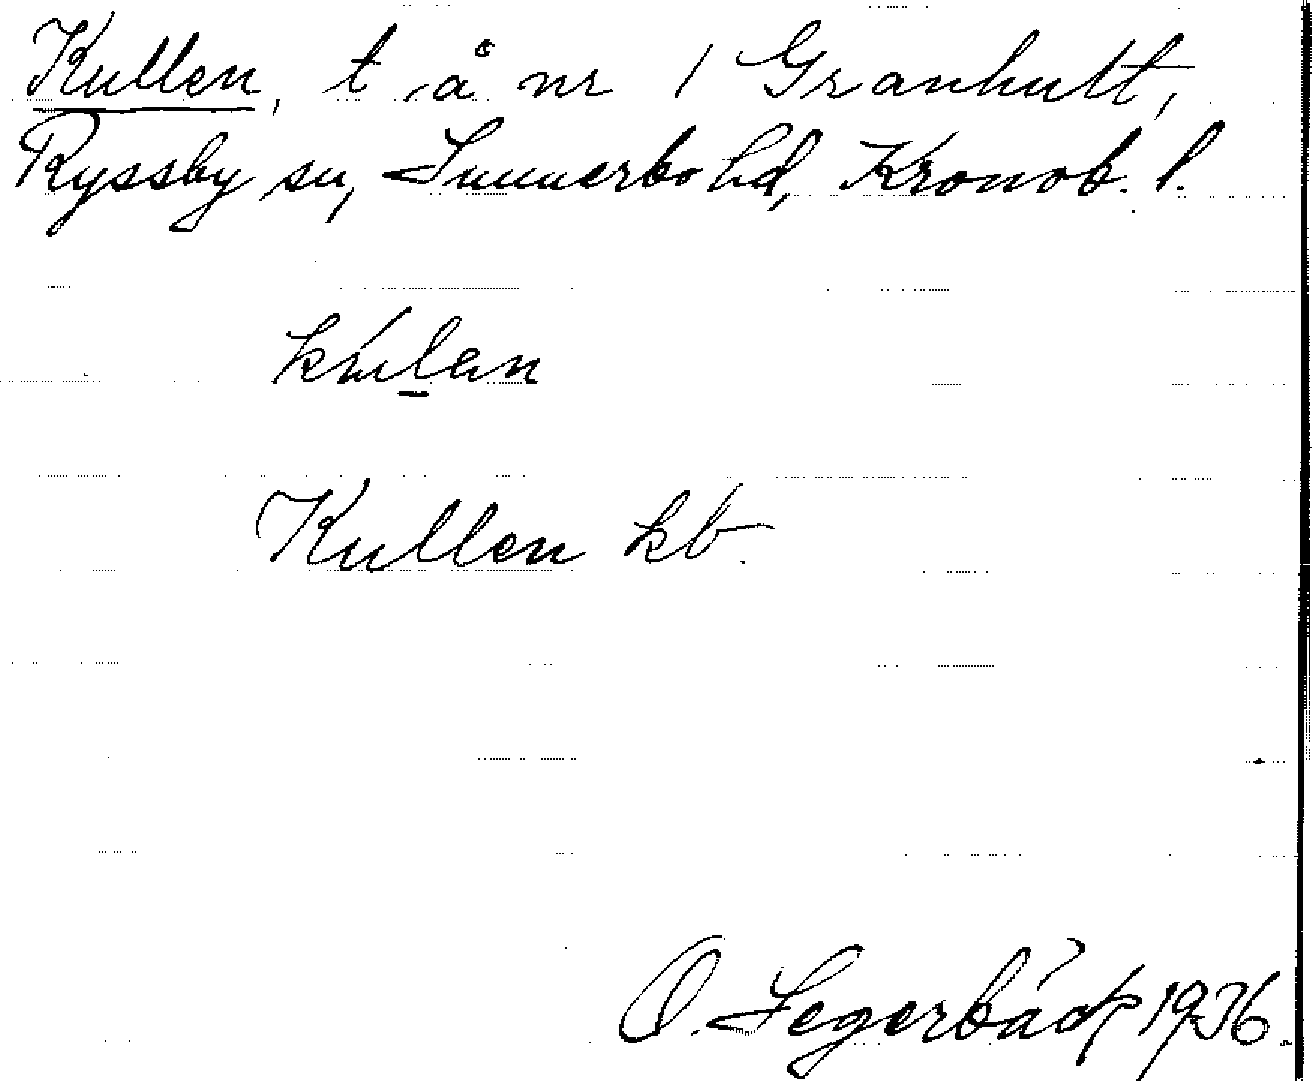 Kullen, t å nr 1 Granhult,
Ryssby sn, Sunnerbo hd, Kronob. l.
kúlan
Kullen kb.
O. Segerbäck 1936.